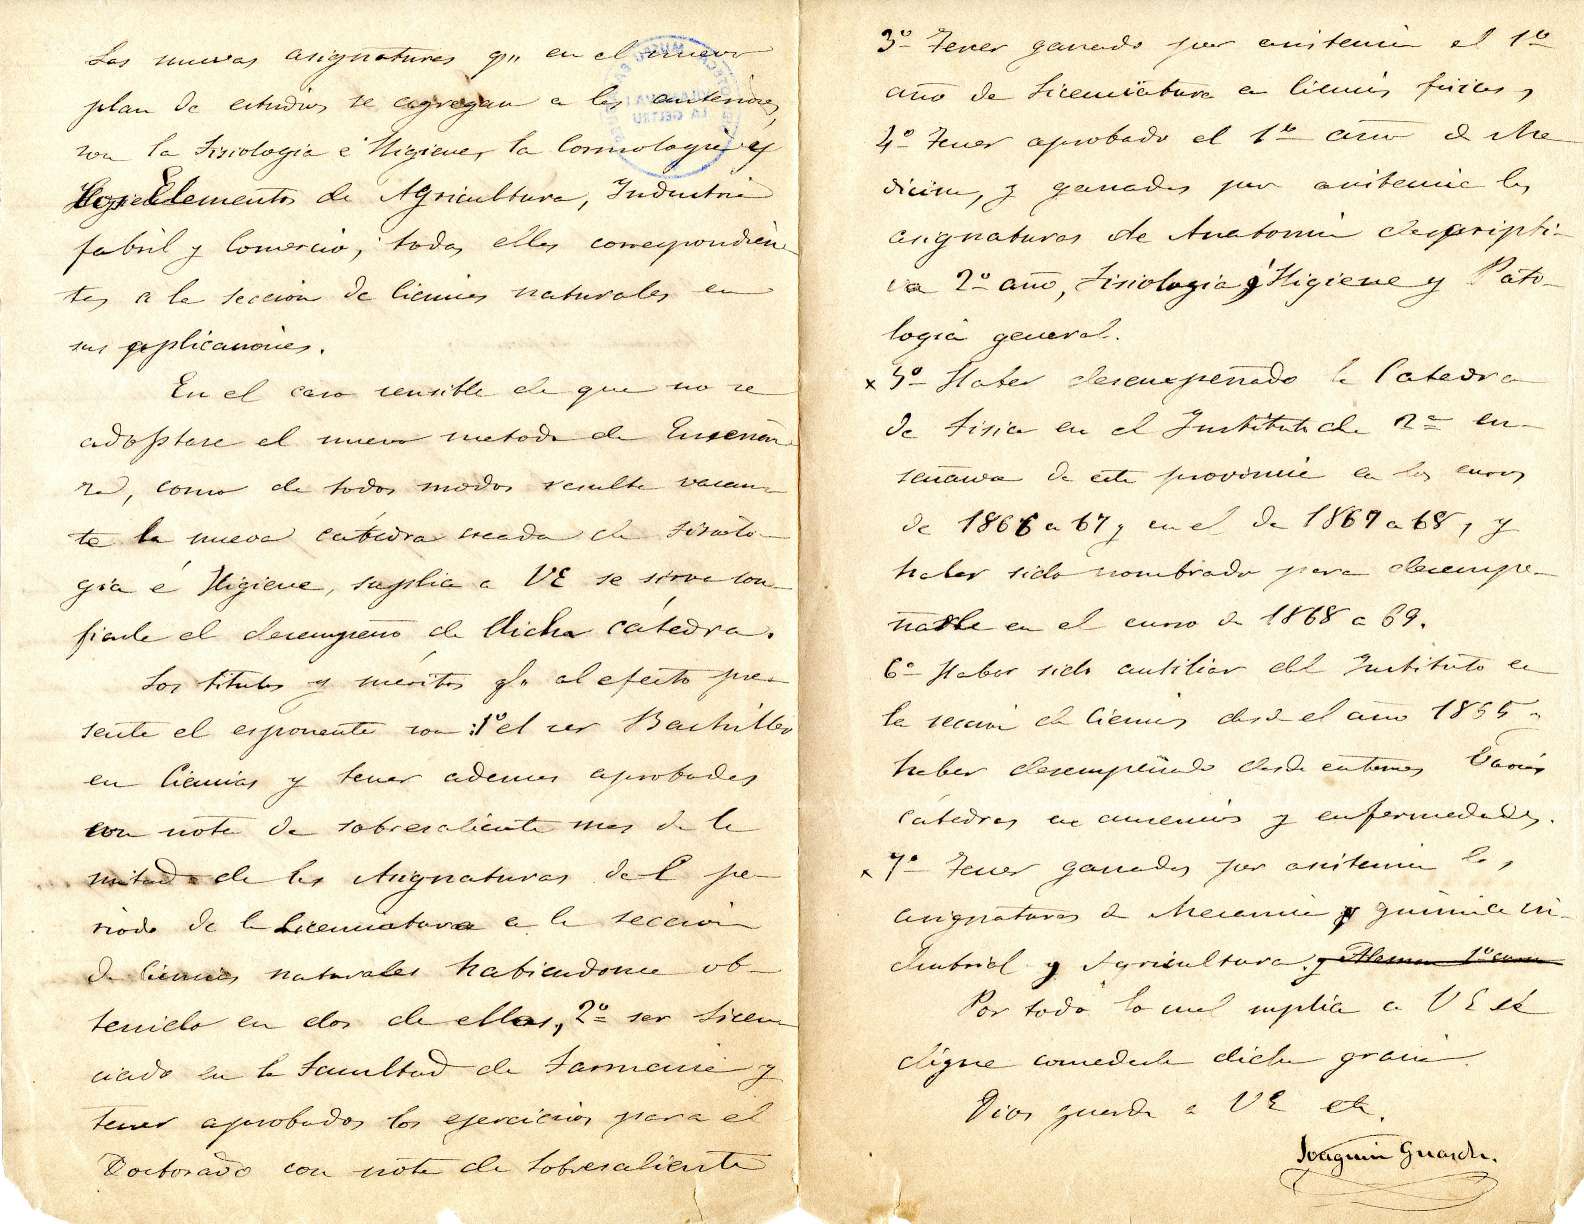 Las nuevas asignaturas q.n en el nuevo
plan de estudios se agregan a las anteriores,
son la Fisiologia é Higiene, la Cosmologia y
los Elementos de Agricultura, Industria
fabril y Comercio, todas ellas correspondien-
tes a la seccion de Ciencias naturales en
sus applicaciones.
En el caso sensible de que no se
adoptase el nuevo metodo de Enseñan-
za, como de todos modos resulta vacan-
te la nueva catédra creada de Fisiolo-
gia é Higiene, suplica a VE se sirva con-
fiarle el desempeño de dicha catédra.
Los titulos y méritos q.n al efecto pre-
senta el esponente son: 1º el ser Bachiller
en Ciencias y tener ademas aprobadas
con nota de sobresaliente mas de la
mitad de las Asignaturas del pe-
riodo de la Licenciatura a la seccion
de Ciencias naturales habiendome ob-
tenido en dos de ellas, 2º ser Licen-
ciado en la Facultad de Farmacia y
tener aprobados los ejercicios para el
Doctorado con nota de Sobresaliente
3º Tener ganado por asistencia el 1º
año de Licenciatura en Ciencias fisicas,
4º Tener aprobado el 1º año de Me
dicina, y ganadas por asistencia las
asignaturas de Anatomia descripti-
va 2º año, Fisiologia é Higiene y Pato-
logia general.
x 5º Haber desempeñado la Catedra
de Fisica en el Instituto de 2ª en-
señanza de esta provincia en los cursos
de 1866 a 67 y en el de 1867 a 68, y
haber sido nombrado para desempe-
ñarla en el curso de 1868 a 69.
6º Haber sido auxiliar del Instituto en
la seccion de Ciencias desde el año 1855 y
haber desempeñado desde entonces Varias
cátedras en ausencias y enfermedades.
x 7º Tener ganadas por asistencia las
asignaturas de Mecanica y quimica in-
dustrial y Agricultura. y Aleman 1º curso
Por todo lo cual suplica a VE se
digne concederle dicha gracia.
Dios guarde a VE etc.
Joaquin Guasch.